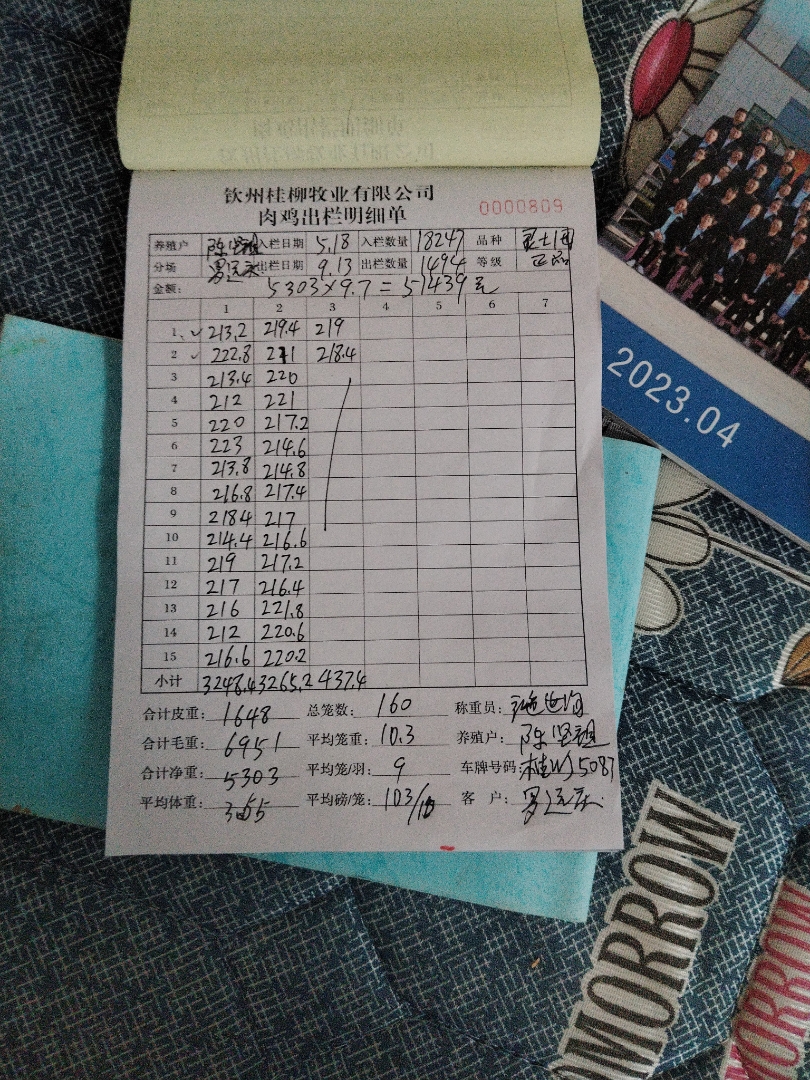 钦州桂柳牧业有限公司
肉鸡出栏明细单 0000809
养殖户 陈坚祖 入栏日期 5.18 入栏数量 18247 品种
分场 出栏日期 9.13 出栏数量 1494 等级 正品
金额: 5303×9.7=51439元
1 2 3 4 5 6 7
1、 ✓ 213.2 219.4 219
2 ✓ 222.8 221 218.4
3 213.4 220
4 212 221
5 220 217.2
6 223 214.6
7 213.8 214.8
8 216.8 217.4
9 218.4 217
10 214.4 216.6
11 219 217.2
12 217 216.4
13 216 221.8
14 212 220.6
15 216.6 220.2
小计 3248.4 3265.2 437.4
合计皮重: 1648 总笼数: 160 称重员:
合计毛重: 6951 平均笼重: 10.3 养殖户: 陈坚祖
合计净重: 5303 平均笼/羽: 9 车牌号码: 桂WJ5087
平均体重: 3.55 平均磅/笼: 103/10 客 户:
2023.04
OMORROW
MORROW